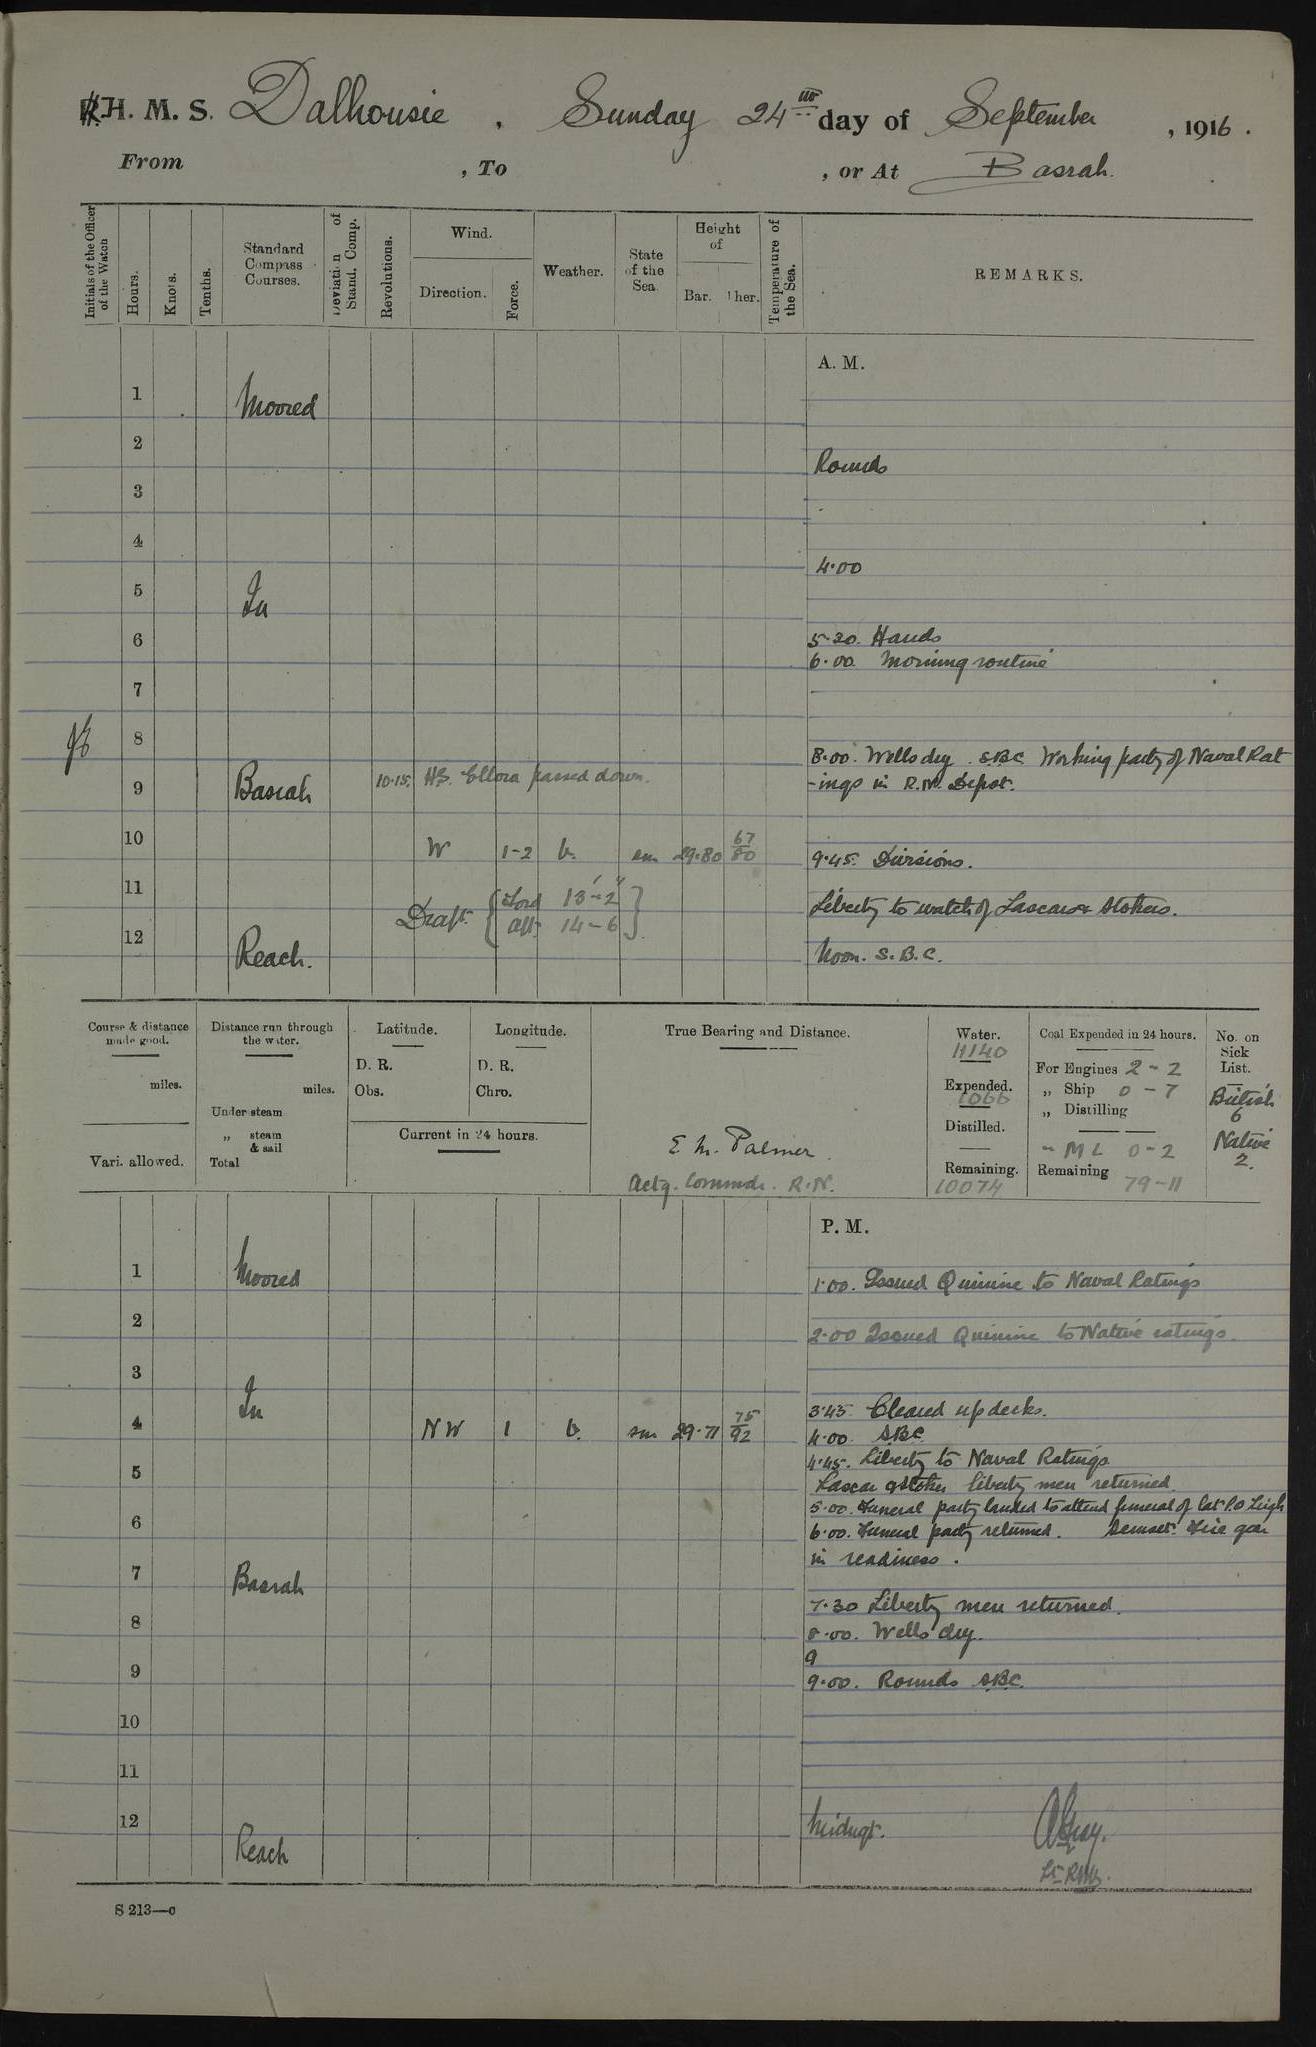 H. M. S. Dalhousie, Sunday 24th day of September, 1916.
From , To , or At Basrah.
Initials of the Officer of the Watch
Hours.
Knots.
Tenths.
Standard Compass Courses.
Deviation of Stand. Comp.
Revolutions.
Wind.
Direction.
Force.
Weather.
State of the Sea
Height of
Bar. Ther.
Temperature of the Sea.
REMARKS.
A. M.
1 Moored
2 Rounds
3
4 4.00
5 In
6 5.20. Hands
6.00 Morning routine
7
8 8.00. Wells dry. SBC Working party of Naval Rat
9 Basrah 10.15. HS. Ellora passed down. -ings in R.N. Depot.
10 W 1-2 b. sm 29.80 67/80 9.45. Divisions.
11 Draft { Ford 13'-2" Liberty to watch of Lascars & Stokers.
Aft. 14-6 }
12 Reach. Noon. S.B.C.
Course & distance made good.
miles.
Vari. allowed.
Distance run through the water.
miles.
Under steam
„ steam & sail
Total
Latitude.
D. R.
Obs.
Longitude.
D. R.
Chro.
Current in 24 hours.
True Bearing and Distance.
E. M. Palmer.
Actg. Commdr. R.N.
Water.
11140
Expended.
1066
Distilled.
Remaining.
10074
Coal Expended in 24 hours.
For Engines 2-2
„ Ship 0-7
„ Distilling
- ML 0-2
Remaining 79-11
No. on Sick List.
British
6
Native
2.
P. M.
1 Moored 1.00. Issued Quinine to Naval Ratings
2 2.00 Issued Quinine to Native ratings.
3
In 3.45. Cleared up decks.
4 NW 1 b. sm 29.71 75/92 4.00. SBC
4.45. Liberty to Naval Ratings
5 Lascar & Stoker liberty men returned.
5.00. Funeral party landed to attend funeral of late P.O Leigh
6 6.00. Funeral party returned. Sunset. Fire gear
in readiness.
7 Basrah
7.30 Liberty men returned.
8 8.00. Wells dry.
9
9 9.00. Rounds SBC.
10
11
12 Midngt.
Reach
S 213—c